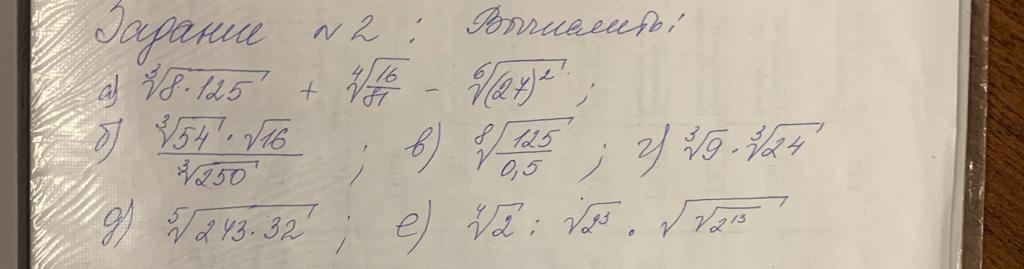 Задание №2 : Вычислить:
а) ∛(8·125) + ∜(16/81) - ⁶√((27)²) ;
б) (∛54 · √16)/∛250 ; в) ⁸√(125/0,5) ; г) ∛9 · ∛24
д) ⁵√(243·32) ; е) ∜2 : √(2³) · √(√(2¹³))